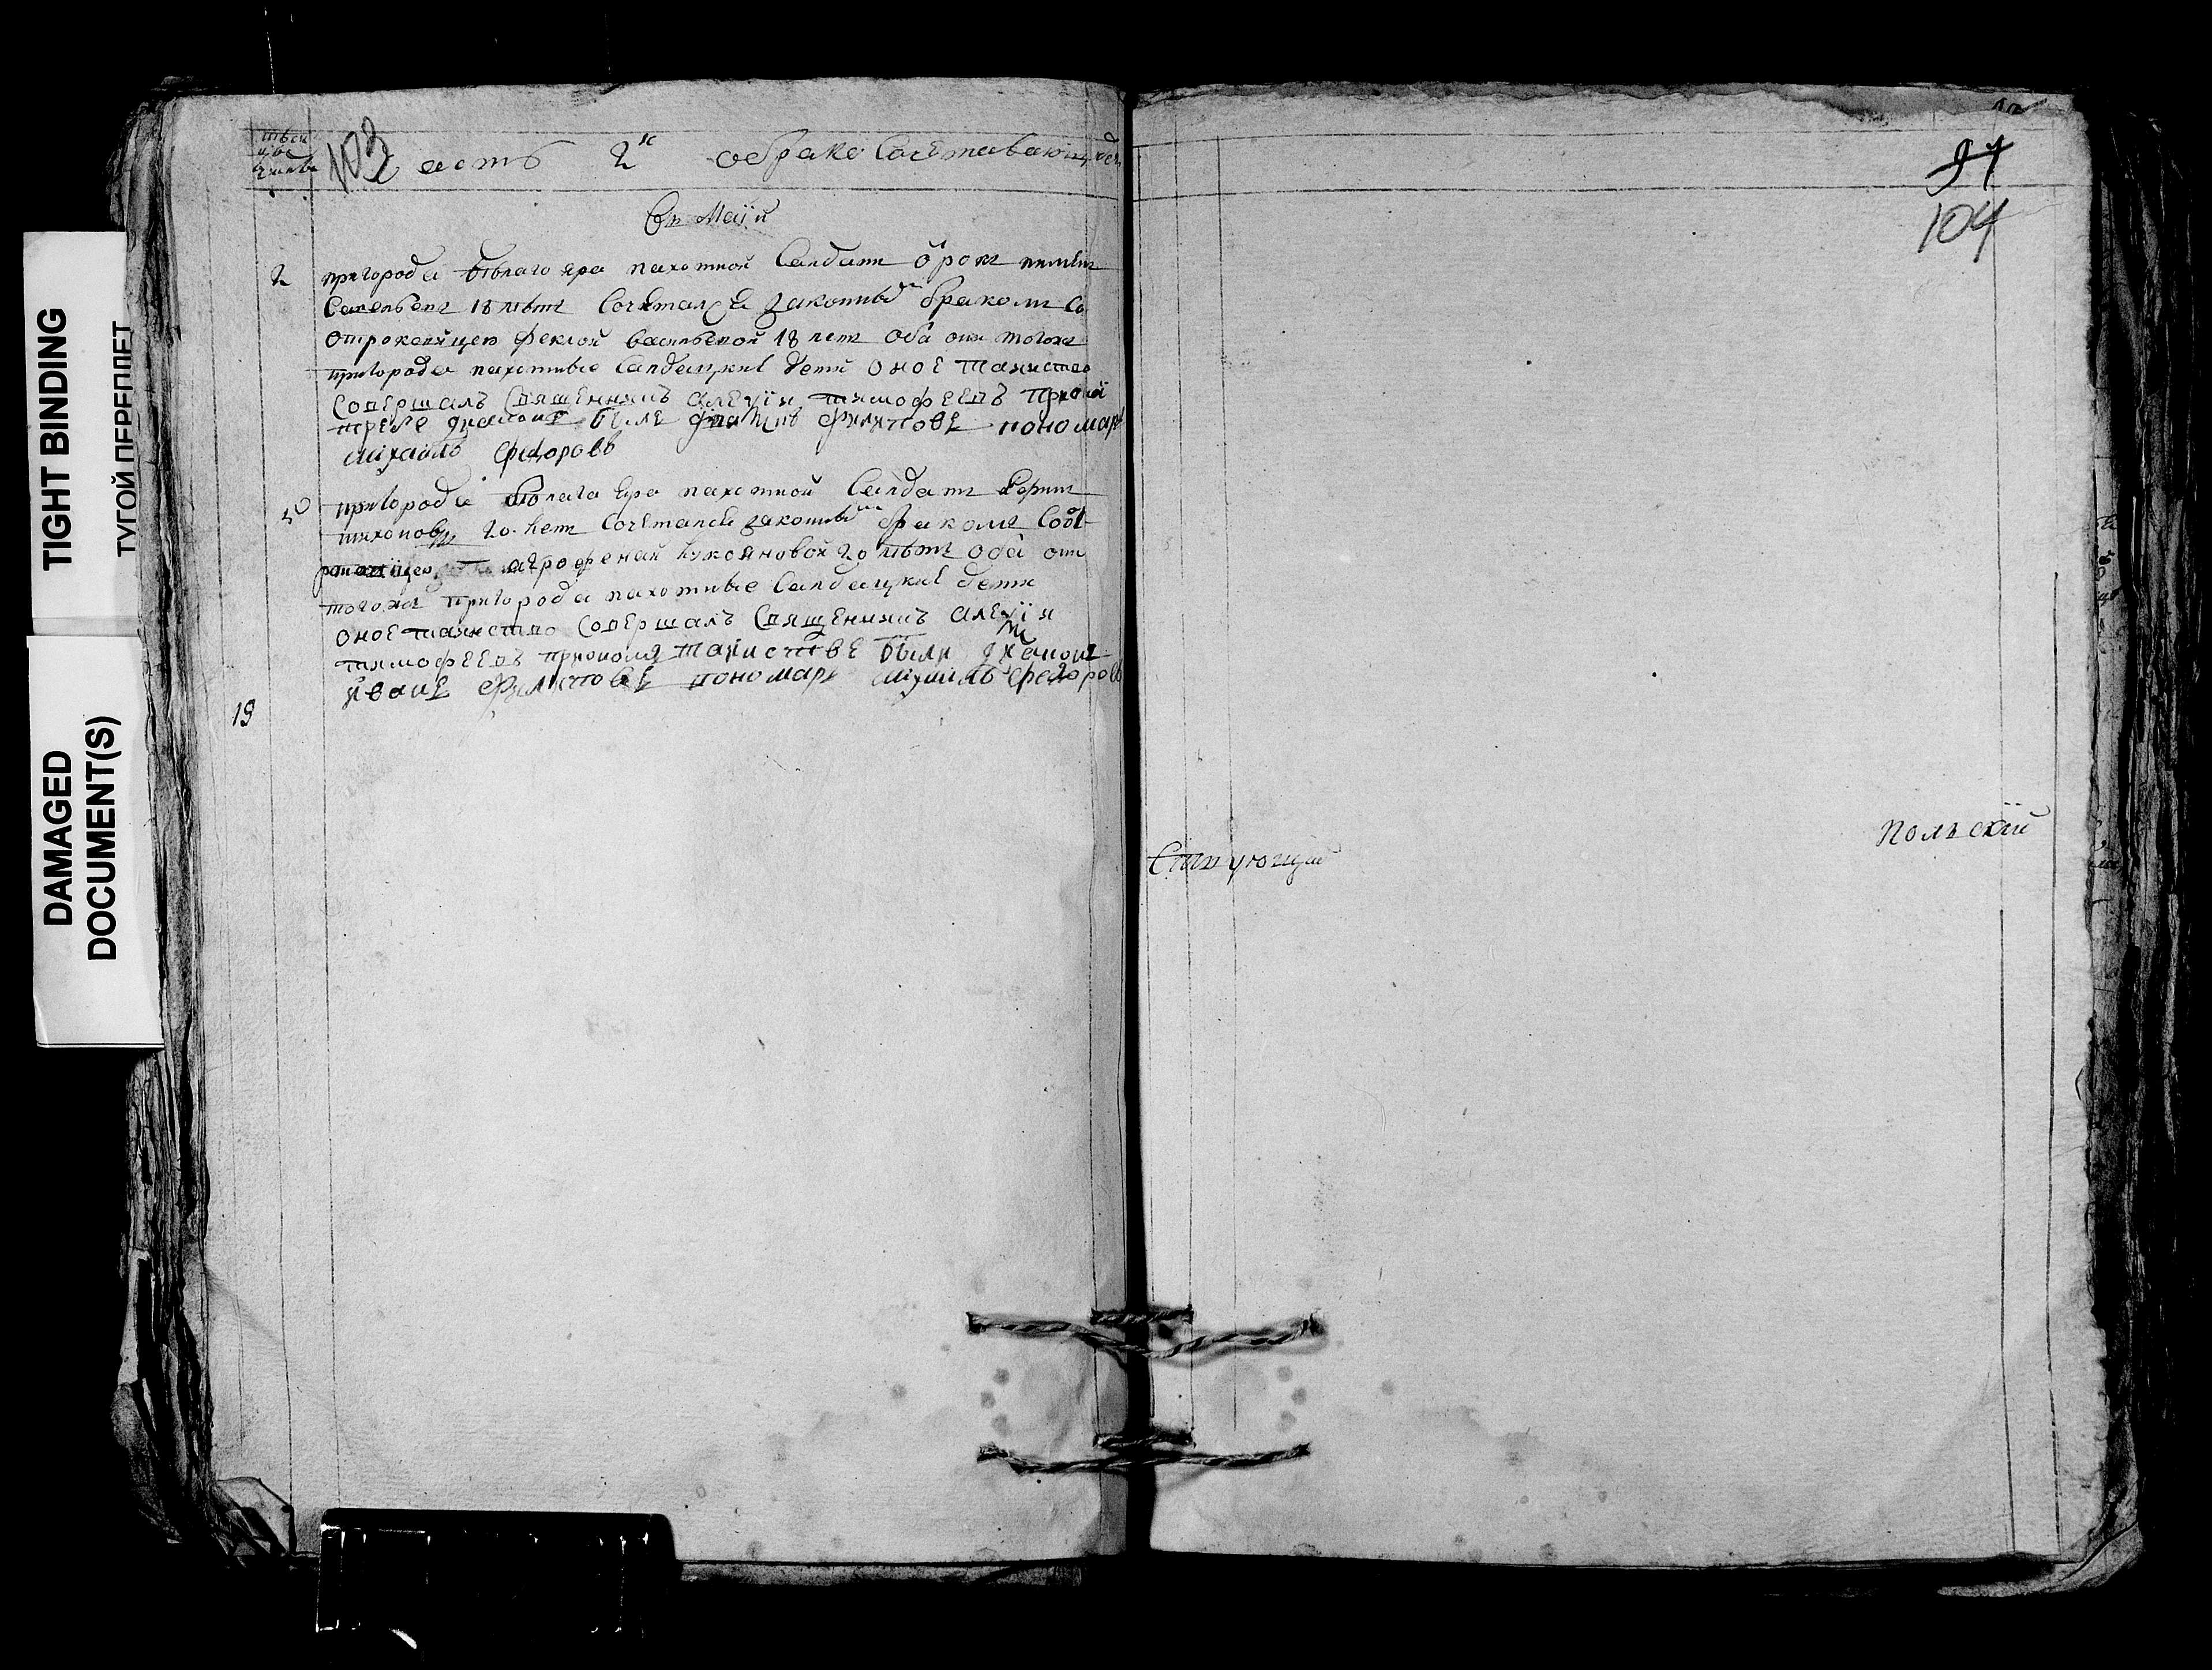 TIGHT BINDING
ТУГОЙ ПЕРЕПЛЕТ
DAMAGED
DOCUMENT(S)
числа
103 часть 2я о браке сочетавающихся
Въ Маiи
2 пригорода бѣлаго яра пахотной Салдатъ
Савельевъ 18 лѣтъ Сочетался законнымъ бракомъ со
отроковицею Феклой васильевой 18 летъ оба они тогожъ
пригорода пахотные Салдацкие дети оное таинство
совершалъ священникъ алеѯiи тимофеевъ при
требе были Филипове пономарь
михаилъ федоровъ
пригорода белаго Яра пахотной Салдатъ
тихоновъ 20 летъ Сочетался законнымъ бракомъ
агрофеной лукояновой 20 лѣтъ оба они
тогожъ пригорода пахотные Салдацкие дети
оное таинство совершалъ священникъ алеѯiи
тимофеевъ приономъ таинстве были дьяконъ
иване Филипове пономарь михаилъ федоровъ
19
91
104
Польскiй